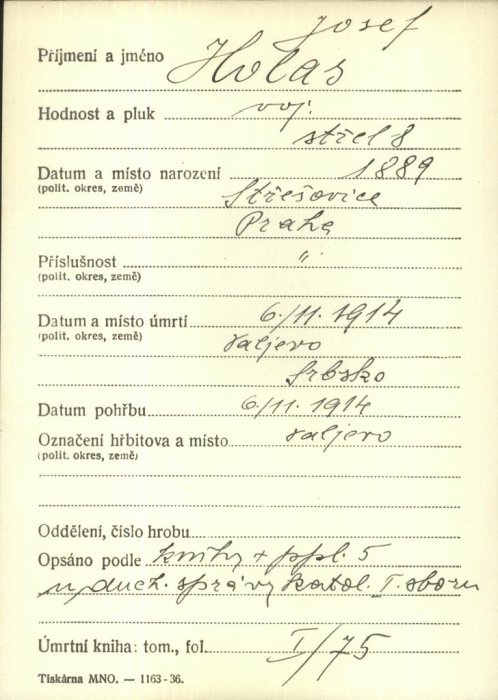 Josef
Příjmení a jméno Holas
Hodnost a pluk voj.
střel 8
Datum a místo narození 1889
(polit. okres, země) Střešovice
Praha
Příslušnost "
(polit. okres, země)
Datum a místo úmrtí 6./11. 1914
(polit. okres, země) Valjevo
Srbsko
Datum pohřbu 6/11. 1914
Označení hřbitova a místo Valjevo
(polit. okres, země)
Oddělení, číslo hrobu
Opsáno podle knihy + ppl. 5
u duch. správy katol. I. sboru
Úmrtní kniha: tom., fol. I/75
Tiskárna MNO. — 1163-36.